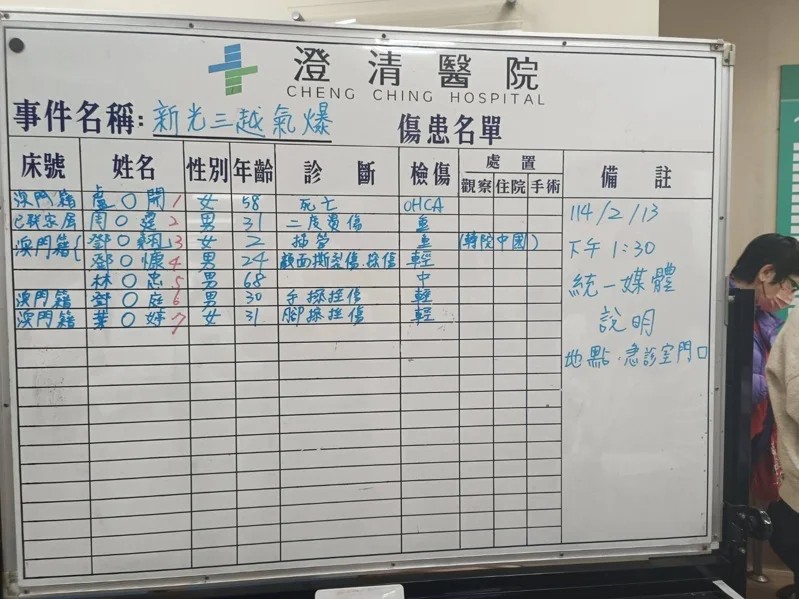 澄清醫院
CHENG CHING HOSPITAL
事件名稱: 新光三越氣爆 傷患名單
床號 姓名 性別 年齡 診斷 檢傷 處置 備註
觀察 住院 手術
澳門籍 盧〇開 1 女 58 死亡 OHCA
已聯家屬 周〇霆 2 男 31 二度燙傷 重
澳門籍 鄧〇 3 女 2 插管 重 (轉院中國)
鄧〇 4 男 24 顏面撕裂傷.擦傷 輕
林〇志 5 男 68 中
澳門籍 〇庭 6 男 30 手擦挫傷 輕
澳門籍 葉〇婷 7 女 31 腳擦挫傷 輕
114/2/13
下午 1:30
統一媒體
說明
地點.急診室門口